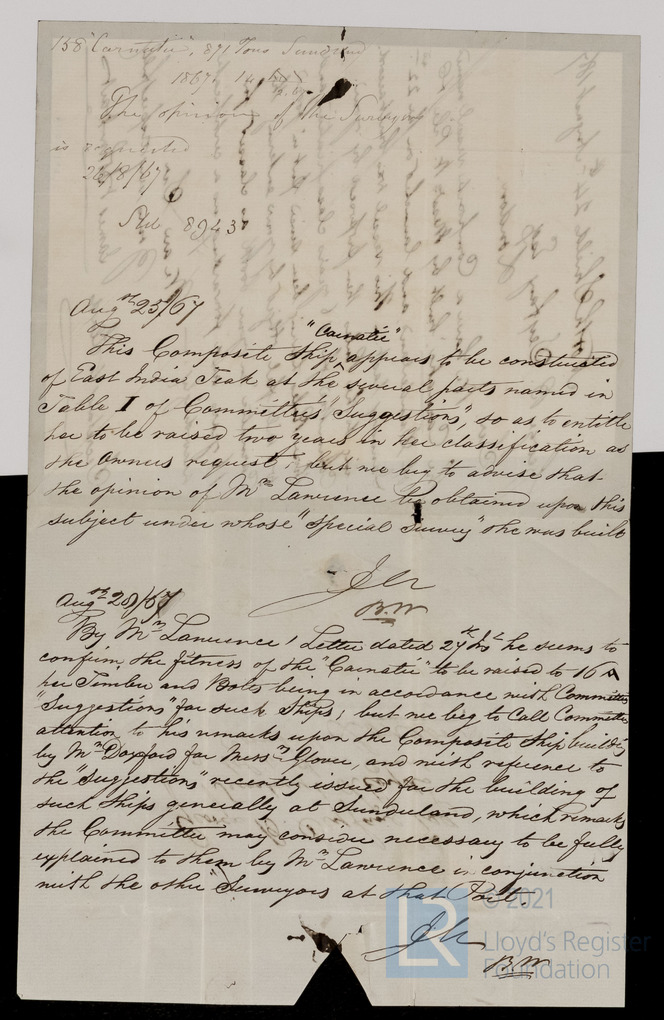 158 "Carnatic", 871 Tons Sunderland
1867.
The opinion of the Surveyors
is requested
26/8/67
Rtd 8943
Augst 23/67
"Carnatic"
This Composite Ship appears to be constructed
of East India Teak at the several parts named in
Table I of Committee's "Suggestions", so as to entitle
her to be raised two years in her classification as
the Owners request; but we beg to advise that
the opinion of Mr. Lawrence be obtained upon this
subject under whose "Special Survey" she was built
JH
B.W
Augst 28/67
By Mr. Lawrence's Letter dated 27th Inst he seems to
confirm the fitness of the "Carnatic" to be raised to 16 A
her Timber and Bolts being in accordance with Committee's
"Suggestions for such Ships"; but we beg to call Committee's
attention to his remarks upon the Composite Ship building
by Mr. Doxford for Messrs. Glover, and with reference to
the "Suggestions" recently issued for the building of
such Ships generally at Sunderland, which remarks
the Committee may consider necessary to be fully
explained to them by Mr. Lawrence in conjunction
with the other Surveyors at that Port.
JH
B.W
LR
© 2021
Lloyd's Register
Foundation